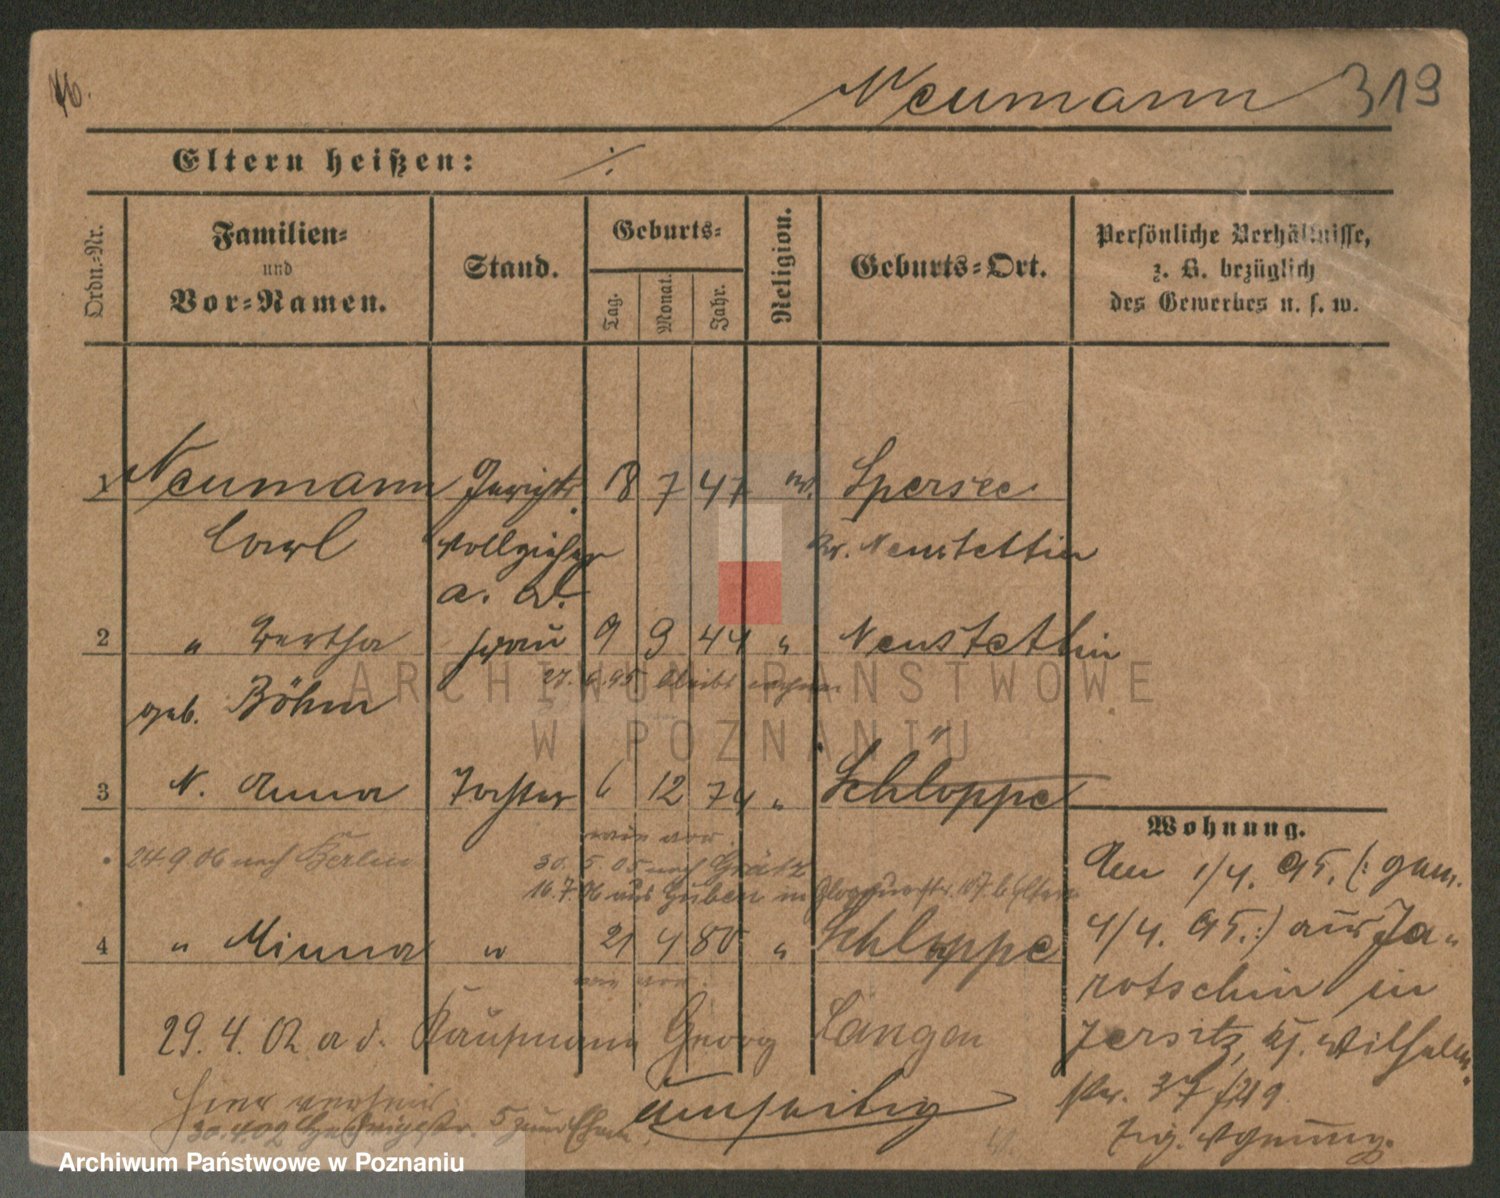 Neumann 319
Eltern heißen: ./.
Ordn.-Nr.
Familien-
und
Vor-Namen.
Stand.
Geburts-
Tag. Monat. Jahr.
Religion.
Geburts-Ort.
Persönliche Verhältnisse,
z. B. bezüglich
des Gewerbes u. s. w.
1 Neumann Gerichts 18 7 47 ev. Spersee
Carl vollzieher Kr. Neustettin
a. D.
2 " Bertha Frau 9 9 44 " Neustettin
27.6.95 bleibt wohnen
geb. Böhm
3 N. Anna Tochter 6 12 74 " Schloppe
wie vor.
24.9.06 nach Berlin 30.5.05 nach Grätz
16.7.06 aus Guben in b Eltern
4 " Minna " 21 4 80 " Schloppe
wie vor.
29.4.02 a d. Kaufmann Georg Langen
hier verheir.
30.4.02 5 zum Ehem.
Umseitig
Wohnung.
Am 1/4. 95. (: gem.
4/4. 95. :) aus Ja-
rotschin in
Jersitz, Wilhelm
str. 37
Wohnung.
ARCHIWUM PAŃSTWOWE
W POZNANIU
Archiwum Państwowe w Poznaniu